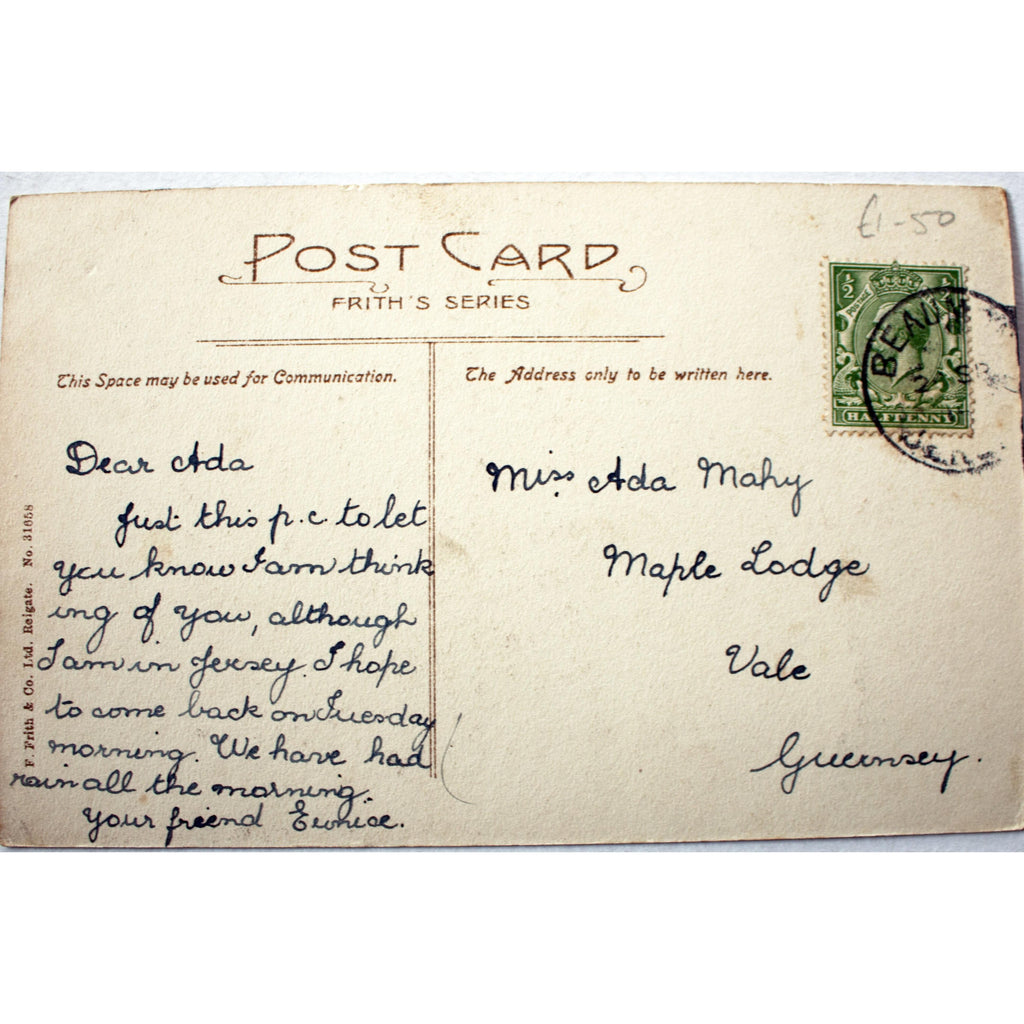 £1-50
POST CARD
FRITH'S SERIES
This Space may be used for Communication.
The Address only to be written here.
½
POSTAGE
HALFPENNY
BEAUM
Dear Ada
Just this p.c. to let
you know I am think
ing of you, although
I am in Jersey. I hope
to come back on Tuesday
morning. We have had
rain all the morning.
Your friend Eunice.
Miss Ada Mahy
Maple Lodge
Vale
Guernsey.
F. Frith & Co. Ltd. Reigate. No. 31658